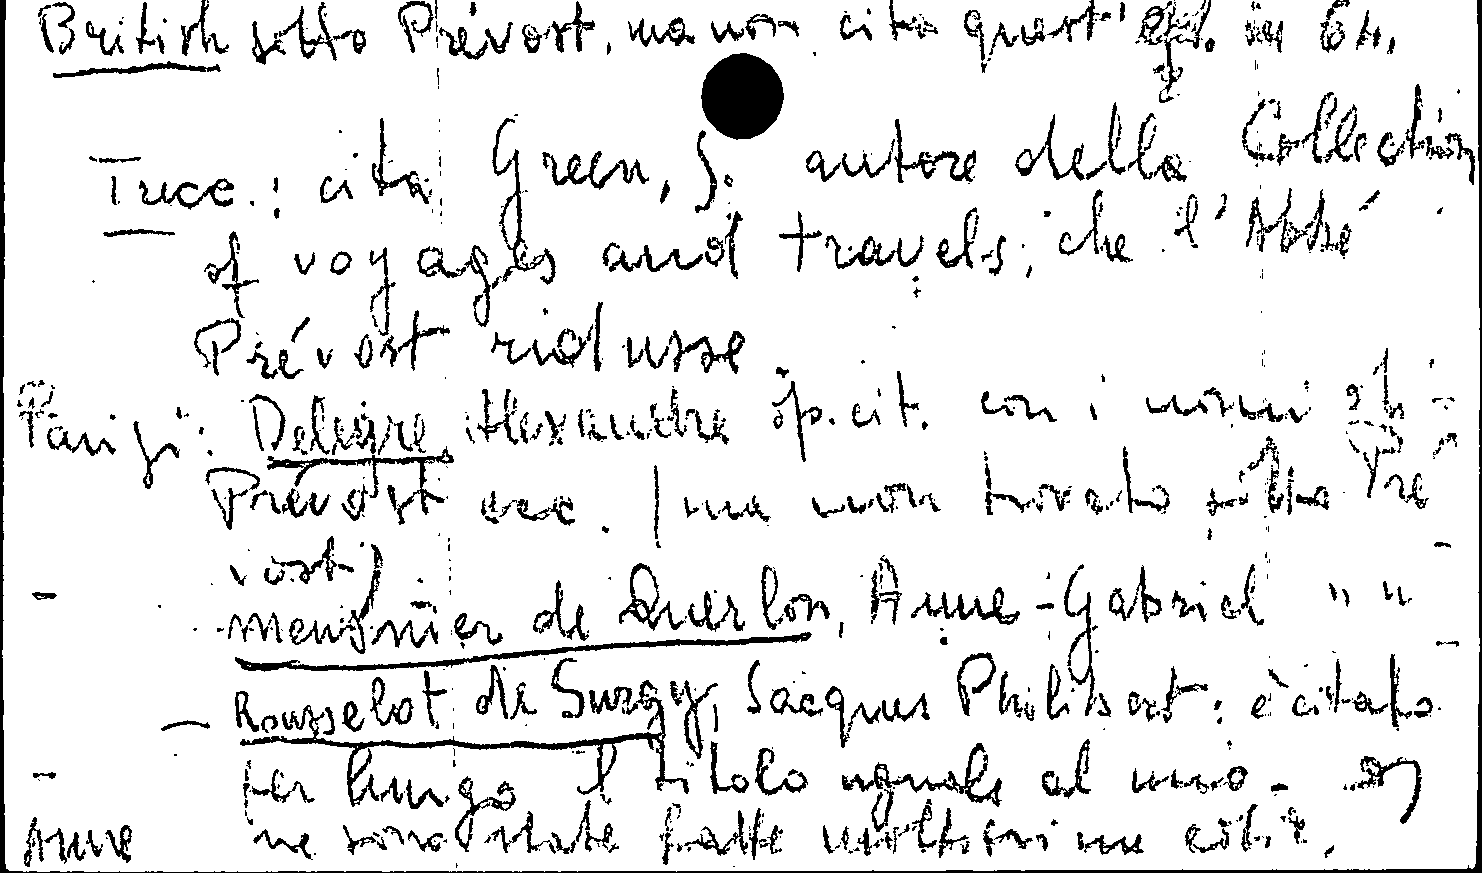 British sotto Prévost, ma non cita quest' ed. in 64.
Tucc.: cita Green, J. autore della Collection
of voyages and travels, che l'Abbé
Prévost ridusse.
Parigi: Deleyre, Alexandre op. cit. con i nomi di
Prévost ecc. (ma non trovato sotto Pré
vost)
- Meusnier de Querlon, Anne-Gabriel " "
- Rousselot de Surgy, Jacques Philibert: è citato
per lungo il titolo uguale al mio -
Anne ne sono state fatte moltissime ediz.